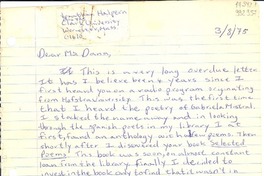 Halpern
University
Worcester, Mass.
01610
3/3/75
Dear Ms. Dann,
This is a very long overdue letter
It has I believe been 2 years since I
first heard you on a radio program originating
from Hofstra University. This was the first time
that I heard of the poetry of Gabriela Mistral.
I stashed the name away and in looking
through the Spanish poets in my library I at
first, found an anthology w/ a few poems. Then
shortly after I discovered your book Selected
Poems. This book was soon, on almost constant
loan from the library. Finally I decided to
invest in the book only to find that it wasn't in